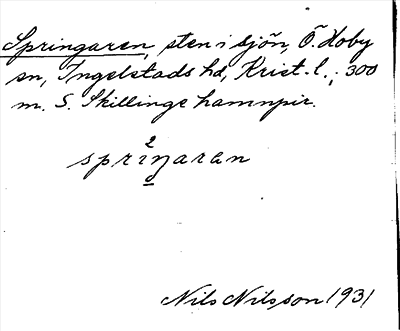 Springaren, sten i sjön, Ö. Hoby
sn, Ingelstads hd, Krist. l.; 300
m. S. Skillinge hamnpir.
spriŋaran
Nils Nilsson 1931